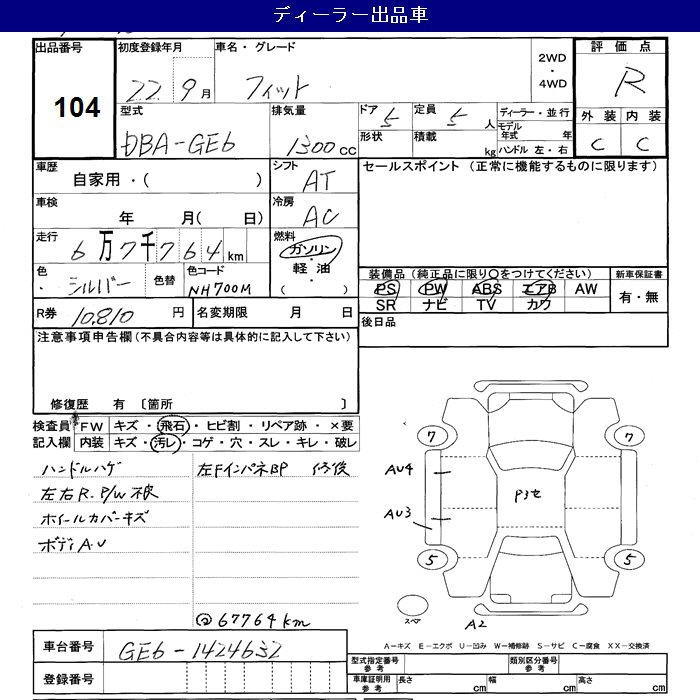 ディーラー出品車
出品番号 初度登録年月 車名・グレード 評価点
104 22年9月 フィット 2WD・4WD R
型式 排気量 ドア 5 定員 5人 ディーラー・並行 外装 内装
DBA-GE6 1300cc 形状 積載 kg モデル年式 年 ハンドル 左・右 C C
車歴 シフト セールスポイント (正常に機能するものに限ります)
自家用・( ) AT
車検 冷房
年 月( 日) AC
走行 6万7千764km 燃料 ガソリン・軽油 ( )
色 シルバー 色替 色コード NH700M
装備品 (純正品に限り○をつけてください) 新車保証書
PS PW ABS エアB AW 有・無
SR ナビ TV カワ
R券 10,810円 名変期限 月 日 後日品
注意事項申告欄 (不具合内容等は具体的に記入して下さい)
修復歴 有 〔箇所 〕
検査員 FW キズ・飛石・ヒビ割・リペア跡・×要
記入欄 内装 キズ・汚レ・コゲ・穴・スレ・キレ・破レ
ハンドルハゲ 左Fインパネ BP 修復
左右R.P/W不良
ホイールカバーキズ
ボディA.U
@67764km
7 7
AU4
P3セ
AU3
5 5
スペア A2
A-キズ E-エクボ U-凹み W-補修跡 S-サビ C-腐食 XX-交換済
車台番号 GE6-1424632
登録番号
型式指定番号 参考 類別区分番号 参考
車庫証明用 参考 長さ cm 幅 cm 高さ cm